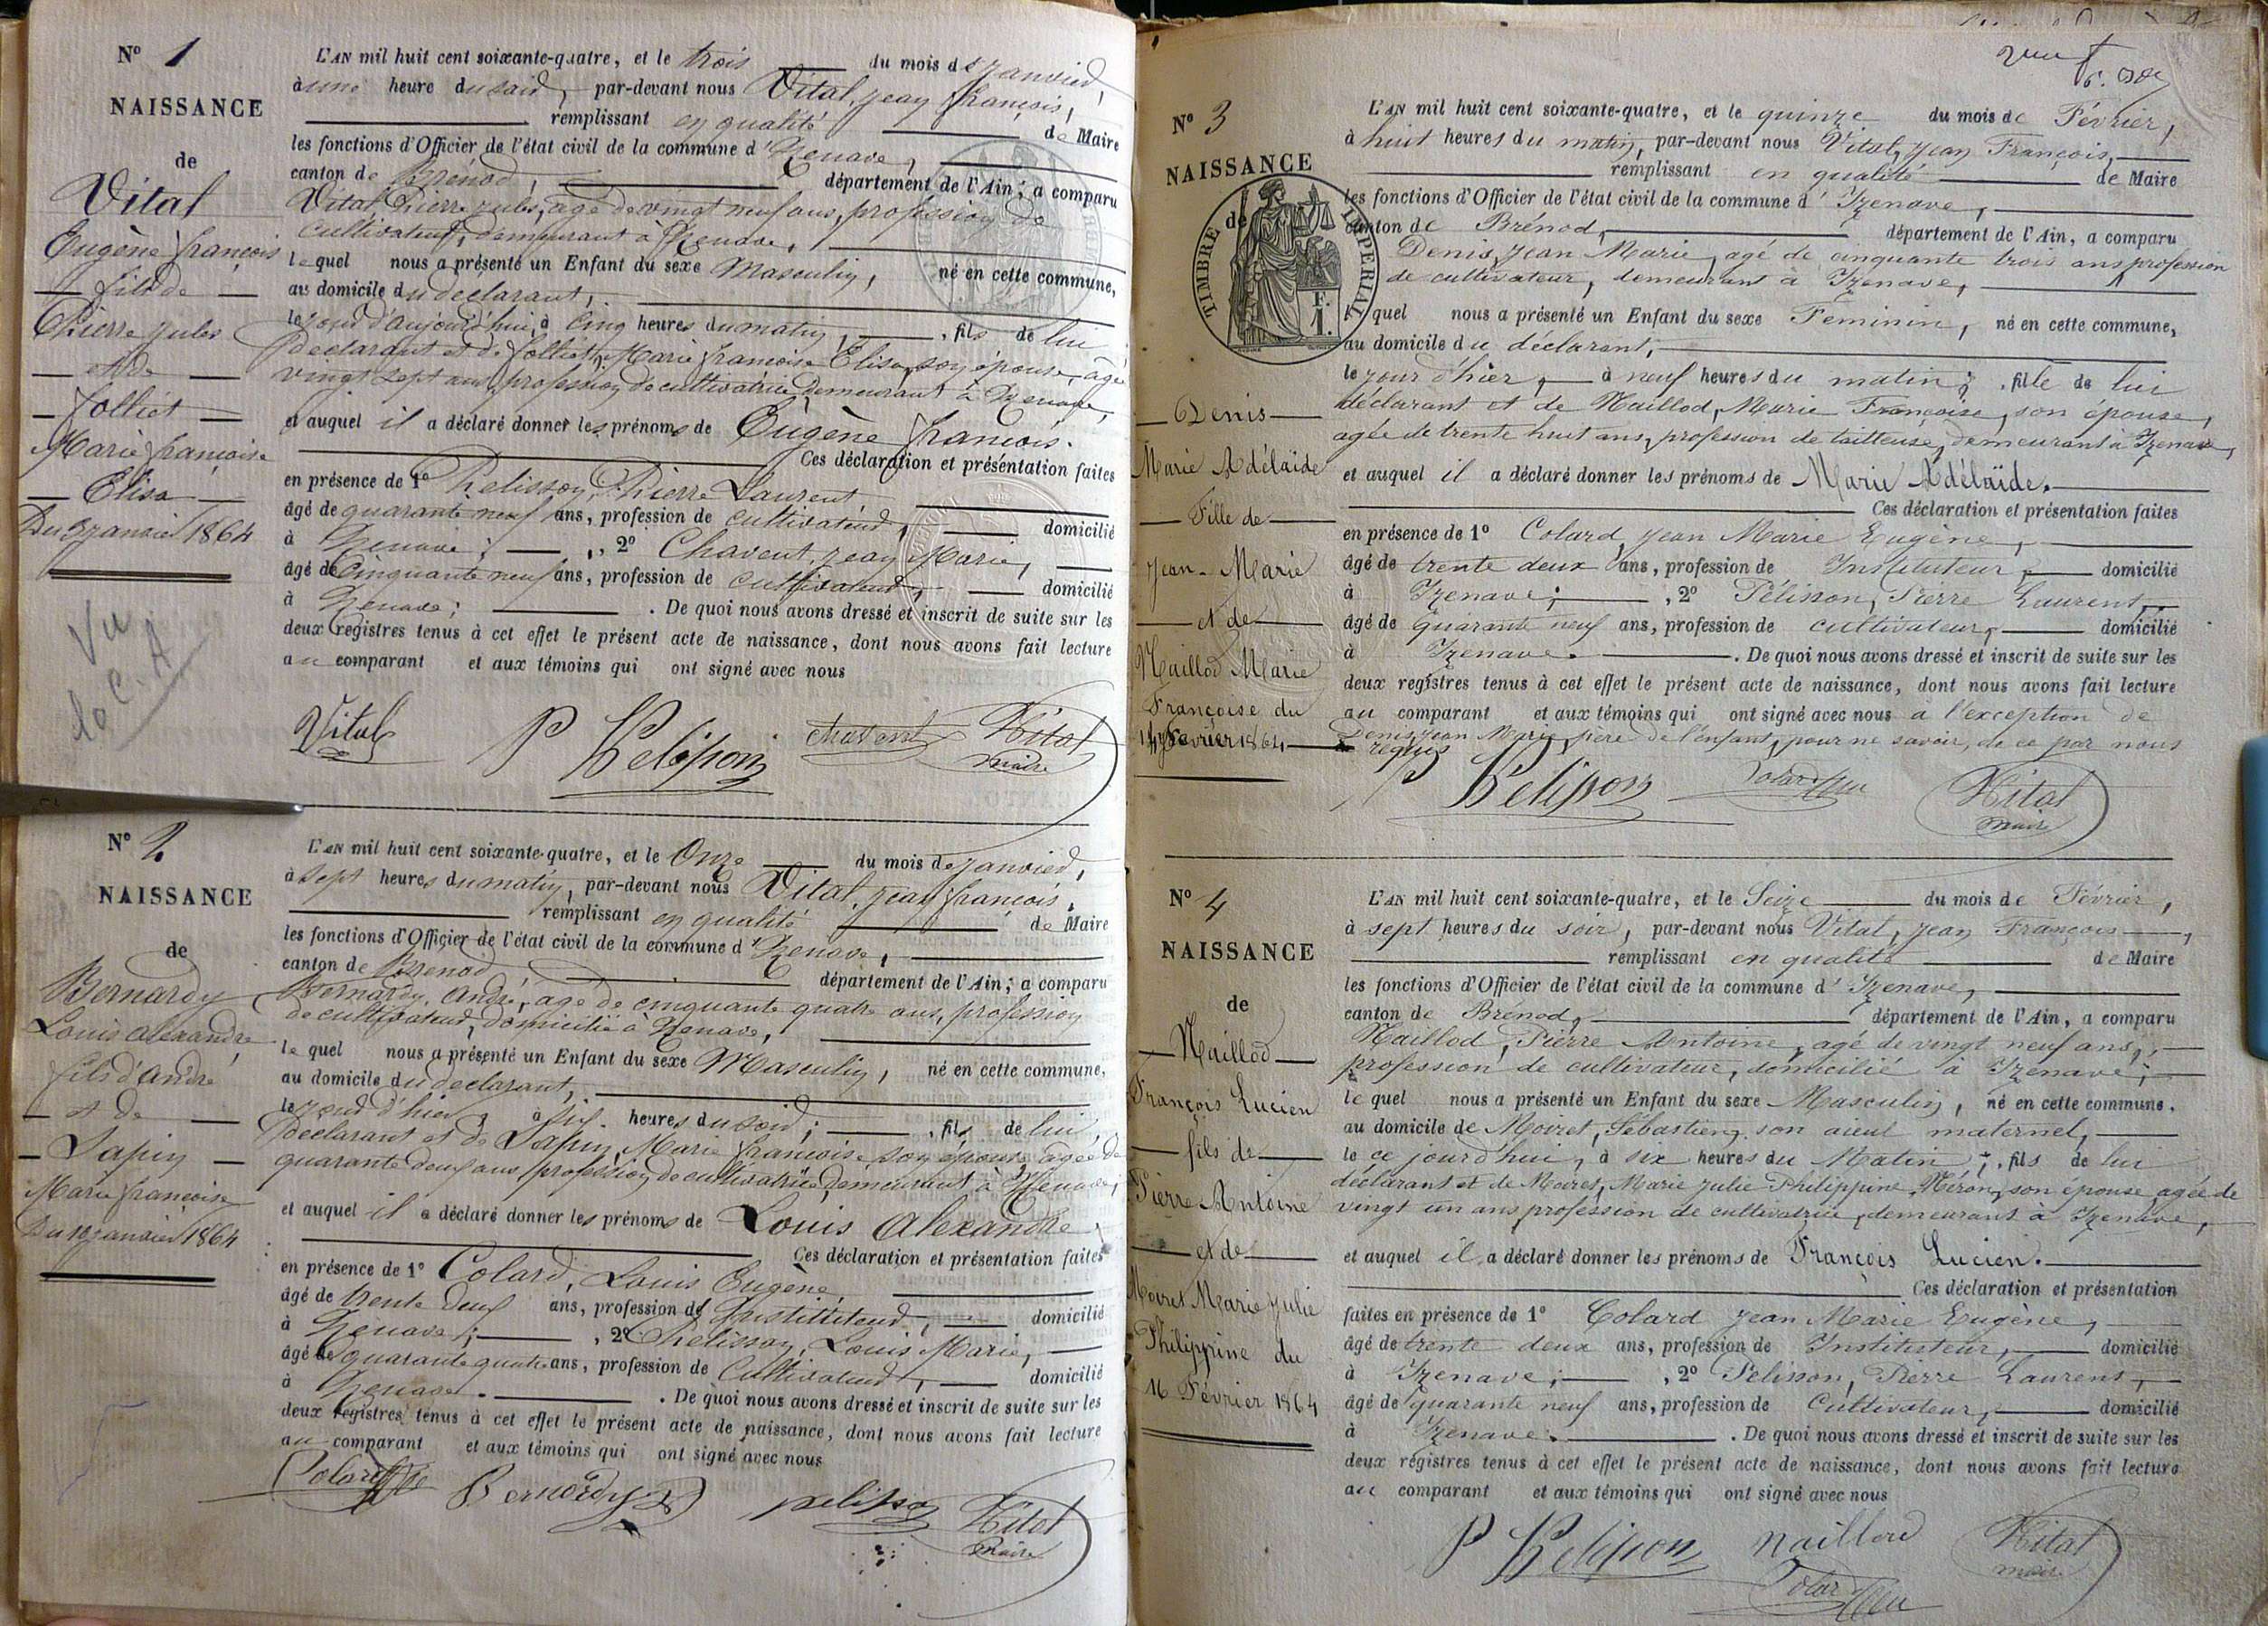 N° 1
NAISSANCE
de
Vital
Eugène françois
fils de
Pierre Jules
et de
Jolliet
Marie françoise
Elisa
Du 3 janvier 1864
Vu
L'AN mil huit cent soixante-quatre, et le trois du mois de janvier,
à une heure du soir, par-devant nous Vital, jean françois,
remplissant en qualité de Maire
les fonctions d'Officier de l'état civil de la commune d'Izenave,
canton de Brénod, département de l'Ain; a comparu
Vital Pierre jules, agé de vingt neuf ans, profession de
cultivateur, demeurant à Izenave,
lequel nous a présenté un Enfant du sexe Masculin, né en cette commune,
au domicile du declarant,
le jour d'aujourd'hui, à cinq heures du matin, fils de lui
declarant et de Jolliet, Marie françoise Elisa, son épouse, agé
vingt sept ans, profession de cultivatrice, demeurant à Izenave,
et auquel il a déclaré donner les prénoms de Eugène françois.
Ces déclaration et présentation faites
en présence de 1° Pelisson, Pierre Laurent
âgé de quarante neuf ans, profession de cultivateur, domicilié
à Izenave; , 2° Chavent, jean Marie,
âgé de Cinquante neuf ans, profession de cultivateur, domicilié
à Izenave; . De quoi nous avons dressé et inscrit de suite sur les
deux registres tenus à cet effet le présent acte de naissance, dont nous avons fait lecture
au comparant et aux témoins qui ont signé avec nous
Vital P Pelisson Chavent Vital
maire
N° 2.
NAISSANCE
de
Bernardy
Louis alexandre
fils d'André
et de
Sapin
Marie françoise
Du 10 janvier 1864
L'AN mil huit cent soixante-quatre, et le Onze du mois de janvier,
à sept heures du matin, par-devant nous Vital, jean françois,
remplissant en qualité de Maire
les fonctions d'Officier de l'état civil de la commune d'Izenave,
canton de Brenod département de l'Ain; a comparu
Bernardy, André, agé de cinquante quatre ans, profession
de cultivateur, domicilié à Izenave,
lequel nous a présenté un Enfant du sexe Masculin, né en cette commune,
au domicile du declarant,
le jour d'hier, à six heures du soir; , fils de lui
declarant et de Sapin, Marie françoise, son épouse, agée de
quarante deux ans, profession de cultivatrice, demeurant à Izenave,
et auquel il a déclaré donner les prénoms de Louis alexandre
Ces déclaration et présentation faites
en présence de 1° Colard, Louis Eugène,
âgé de trente deux ans, profession de Instituteur, domicilié
à Izenave; , 2° Pelisson, Louis Marie,
âgé de quarante quatre ans, profession de Cultivateur, domicilié
à Izenave. . De quoi nous avons dressé et inscrit de suite sur les
deux registres tenus à cet effet le présent acte de naissance, dont nous avons fait lecture
au comparant et aux témoins qui ont signé avec nous
Colard Bernardy pelisson Vital
maire
N° 3
NAISSANCE
de
Denis
Marie Adélaïde
Fille de
Jean-Marie
et de
Maillod Marie
Françoise du
14 février 1864
TIMBRE IMPERIAL
F.
1.
L'AN mil huit cent soixante-quatre, et le quinze du mois de Février,
à huit heures du matin, par-devant nous Vital, jean François,
remplissant en qualité de Maire
les fonctions d'Officier de l'état civil de la commune d'Izenave,
canton de Brénod, département de l'Ain, a comparu
Denis, Jean Marie, agé de cinquante trois ans profession
de cultivateur, demeurant à Izenave,
lequel nous a présenté un Enfant du sexe Feminin, né en cette commune,
au domicile du déclarant,
le jour d'hier, à neuf heures du matin; , fille de lui
déclarant et de Maillod, Marie Françoise, son épouse,
agée de trente huit ans, profession de tailleuse, demeurant à Izenave,
et auquel il a déclaré donner les prénoms de Marie Adélaïde.
Ces déclaration et présentation faites
en présence de 1° Colard jean Marie Eugène,
âgé de trente deux ans, profession de Instituteur, domicilié
à Izenave; , 2° Pélisson, Pierre Laurent,
âgé de quarante neuf ans, profession de cultivateur, domicilié
à Izenave. . De quoi nous avons dressé et inscrit de suite sur les
deux registres tenus à cet effet le présent acte de naissance, dont nous avons fait lecture
au comparant et aux témoins qui ont signé avec nous à l'exception de
Denis jean Marie, père de l'enfant, pour ne savoir, de ce par nous
requis
P Pelisson Colard Vital
maire
N° 4
NAISSANCE
de
Maillod
François Lucien
fils de
Pierre Antoine
et de
Moiret Marie Julie
Philippine du
16 Février 1864
L'AN mil huit cent soixante-quatre, et le Seize du mois de Février,
à sept heures du soir, par-devant nous Vital, jean François,
remplissant en qualité de Maire
les fonctions d'Officier de l'état civil de la commune d'Izenave,
canton de Brénod, département de l'Ain, a comparu
Maillod, Pierre Antoine, agé de vingt neuf ans,
profession de cultivateur, domicilié à Izenave;
lequel nous a présenté un Enfant du sexe Masculin, né en cette commune.
au domicile de Moiret, Sébastien, son aïeul maternel,
le ce jourd'hui, à six heures du Matin; , fils de lui
déclarant et de Moiret, Marie Julie Philippine, son épouse agée de
vingt un ans profession de cultivatrice, demeurant à Izenave,
et auquel il a déclaré donner les prénoms de François Lucien.
Ces déclaration et présentation
faites en présence de 1° Colard jean Marie Eugène,
âgé de trente deux ans, profession de Instituteur, domicilié
à Izenave; , 2° Pelisson, Pierre Laurent,
âgé de quarante neuf ans, profession de Cultivateur, domicilié
à Izenave. . De quoi nous avons dressé et inscrit de suite sur les
deux registres tenus à cet effet le présent acte de naissance, dont nous avons fait lecture
au comparant et aux témoins qui ont signé avec nous
P Pelisson Maillod Vital
maire
Colard